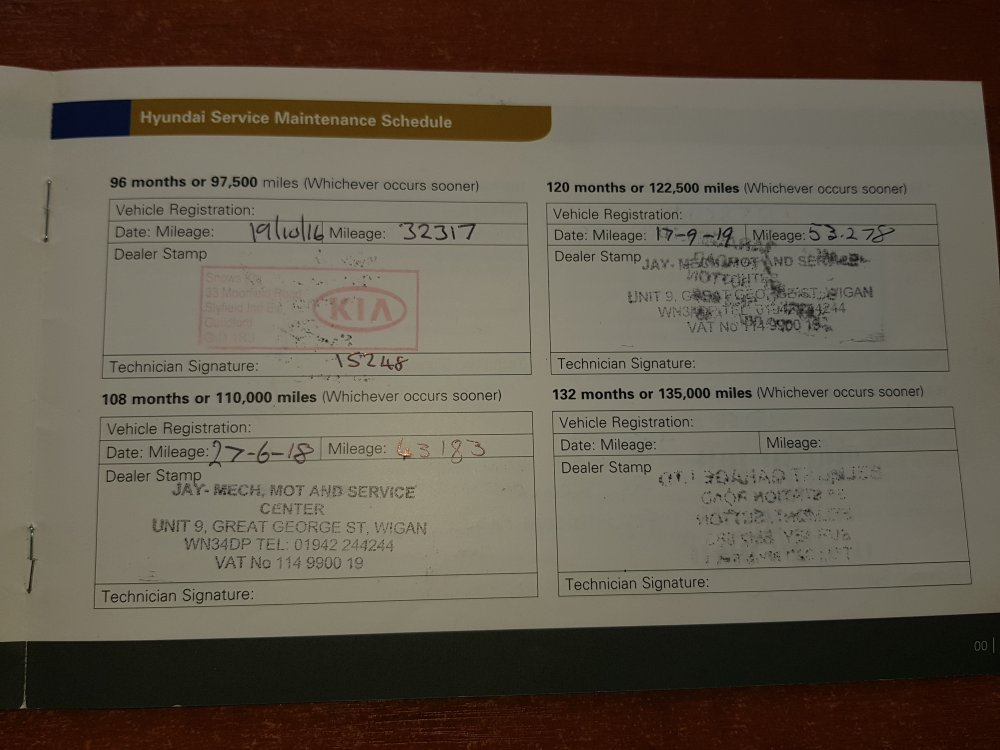 Hyundai Service Maintenance Schedule
96 months or 97,500 miles (Whichever occurs sooner)
Vehicle Registration:
Date: Mileage: 19/10/16 Mileage: 32317
Dealer Stamp
Snows Kia
33 Moorfield Road
Slyfield Ind Est,
Guildford
KIA
Technician Signature: 15248
108 months or 110,000 miles (Whichever occurs sooner)
Vehicle Registration:
Date: Mileage: 27-6-18 Mileage: 43183
Dealer Stamp
JAY- MECH, MOT AND SERVICE
CENTER
UNIT 9, GREAT GEORGE ST, WIGAN
WN34DP TEL: 01942 244244
VAT No 114 9900 19
Technician Signature:
120 months or 122,500 miles (Whichever occurs sooner)
Vehicle Registration:
Date: Mileage: 17-9-19 Mileage: 53.278
Dealer Stamp
JAY- MECH, MOT AND SERVICE
UNIT 9, GREAT GEORGE ST, WIGAN
WN34DP TEL: 01942 244244
VAT No 114 9900 19
Technician Signature:
132 months or 135,000 miles (Whichever occurs sooner)
Vehicle Registration:
Date: Mileage: Mileage:
Dealer Stamp
Technician Signature:
00